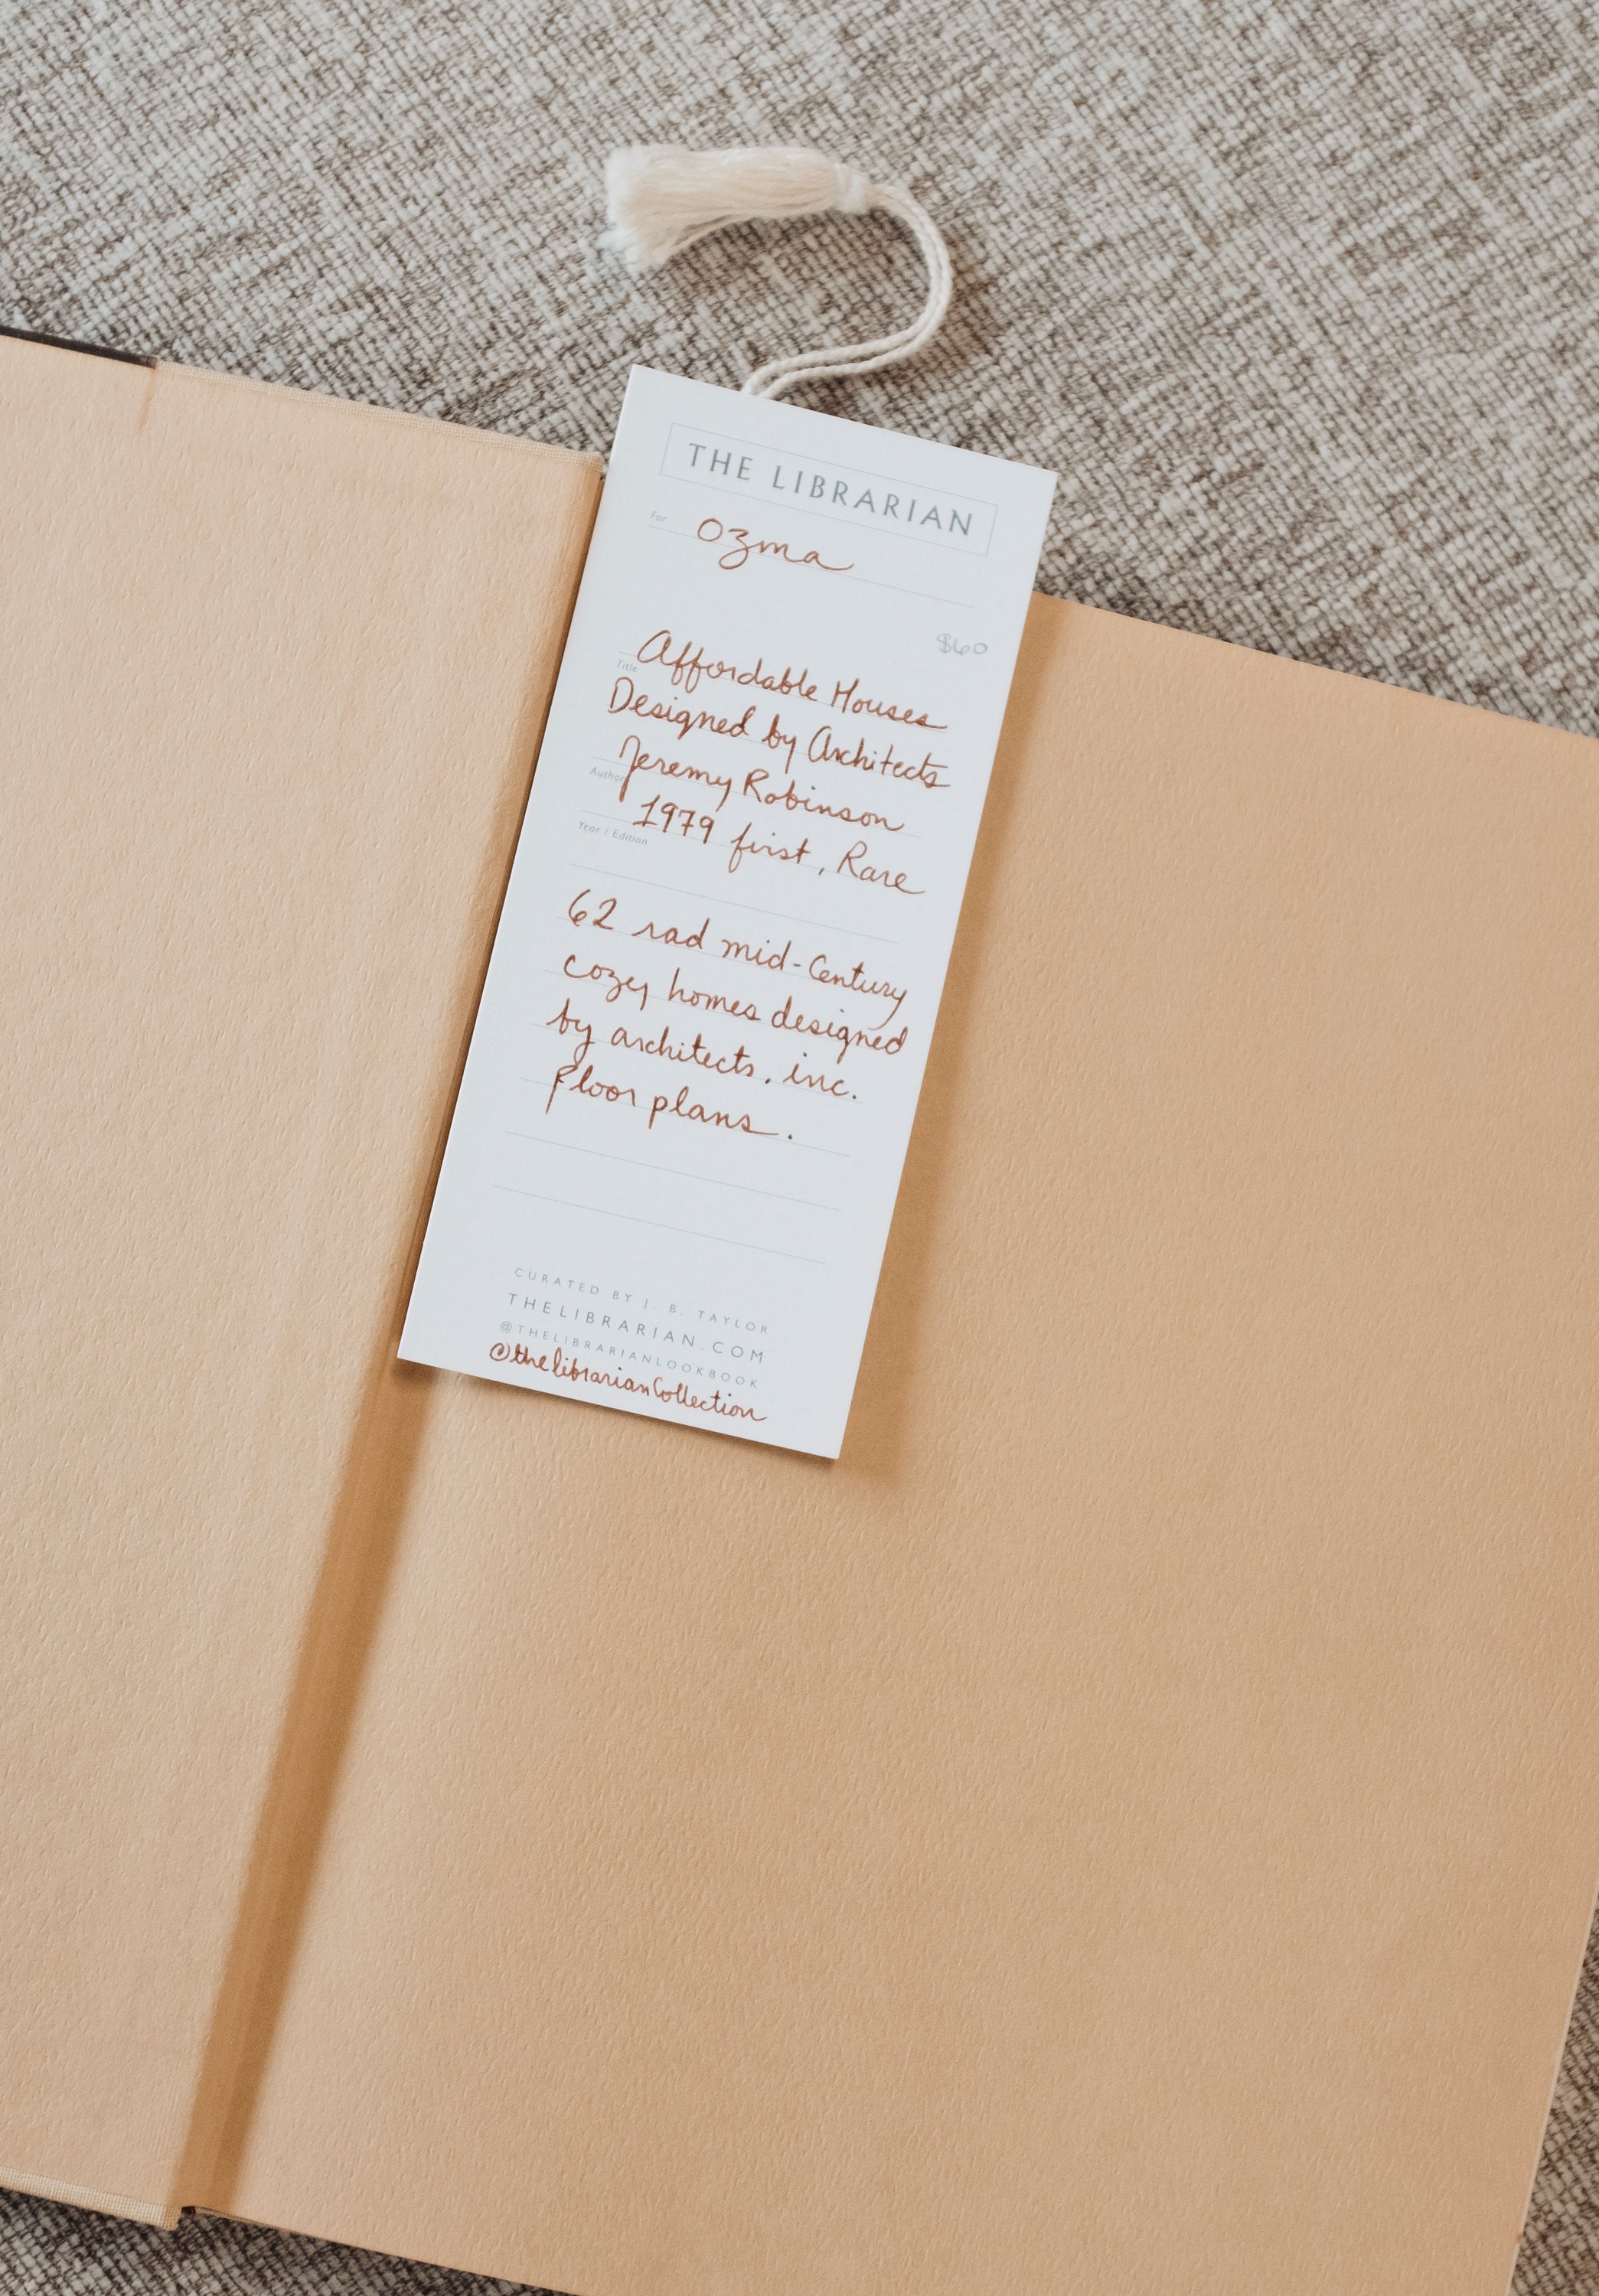 THE LIBRARIAN
For Ozma
$60
Title Affordable Houses
Designed by Architects
Author Jeremy Robinson
Year / Edition 1979 first, Rare
62 rad mid-Century
cozy homes designed
by architects, inc.
floor plans.
CURATED BY J. B. TAYLOR
THELIBRARIAN.COM
@THELIBRARIANLOOKBOOK
@thelibrarianCollection